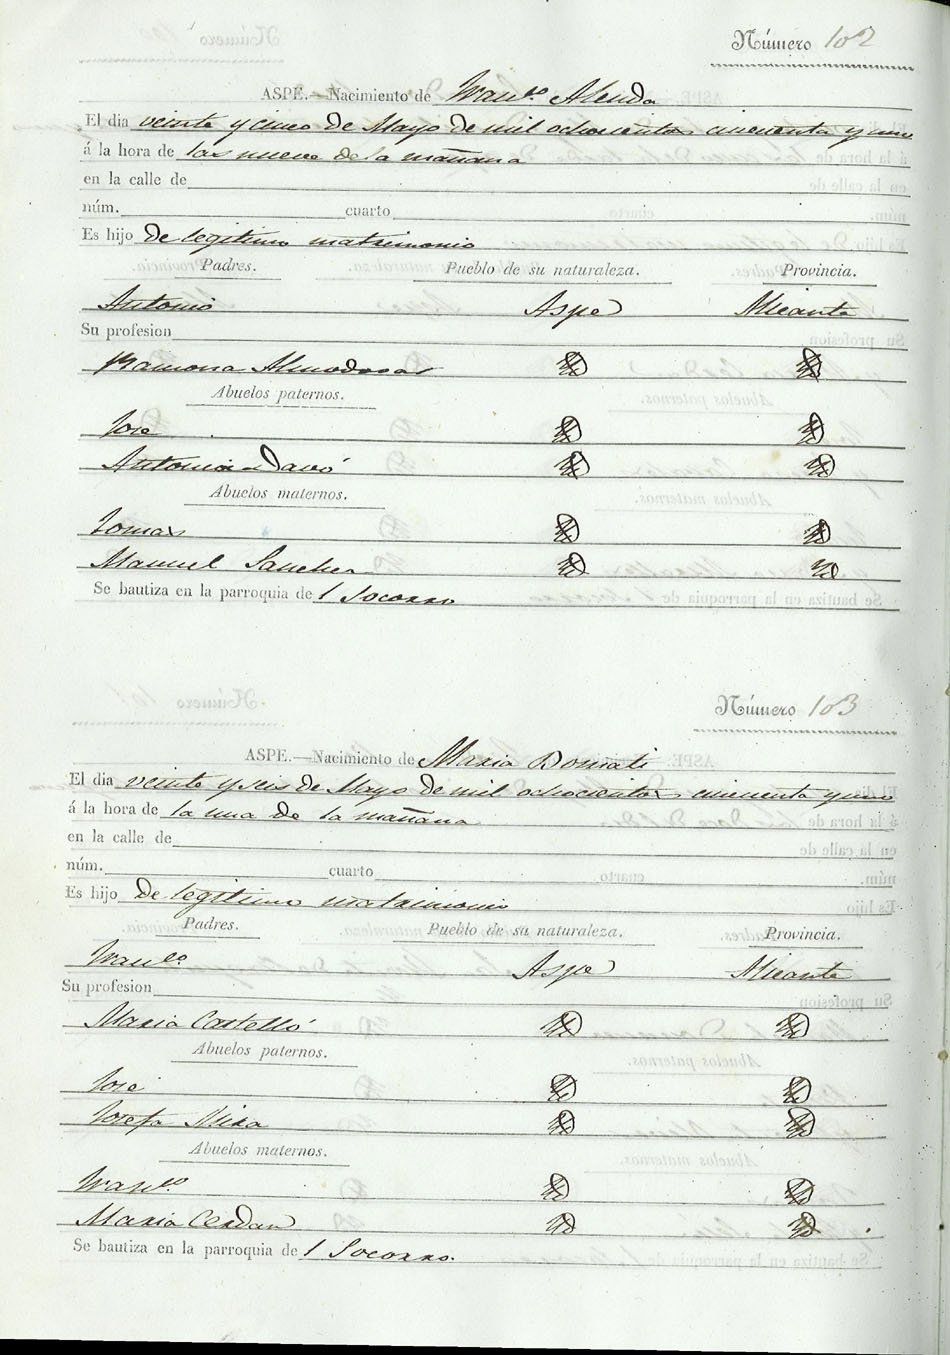 Número 102
ASPE.—Nacimiento de Franco. Alenda
El dia veinte y cinco de Mayo de mil ochocientos cincuenta y uno
á la hora de las nueve de la mañana
en la calle de
núm. cuarto
Es hijo de legitimo matrimonio
Padres. Pueblo de su naturaleza. Provincia.
Antonio Aspe Alicante
Su profesion
Ramona Almodovar Yd Yd
Abuelos paternos.
Jose Yd Yd
Antonia Davó Yd Yd
Abuelos maternos.
Tomas Yd Yd
Manuel Sanchez Yd Yd
Se bautiza en la parroquia de l Socorro
Número 103
ASPE.—Nacimiento de Maria Boniati
El dia veinte y seis de Mayo de mil ochocientos cincuenta y uno
á la hora de la una de la mañana
en la calle de
núm. cuarto
Es hijo de legitimo matrimonio
Padres. Pueblo de su naturaleza. Provincia.
Franco. Aspe Alicante
Su profesion
Maria Castelló Yd Yd
Abuelos paternos.
José Yd Yd
Josefa Mira Yd Yd
Abuelos maternos.
Franco. Yd Yd
Maria Cerdan Yd Yd
Se bautiza en la parroquia de l Socorro.